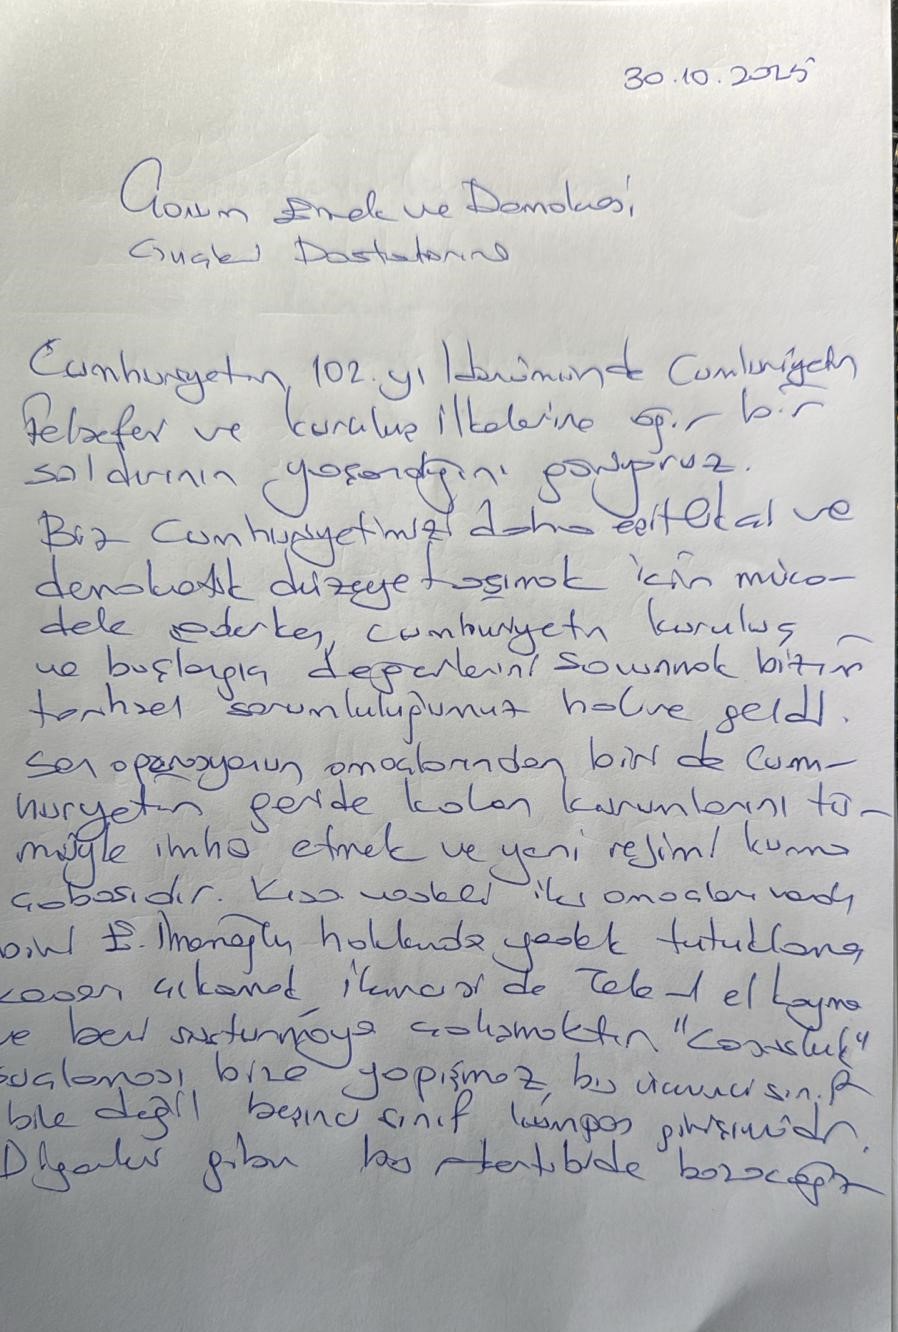 30.10.2025
Emek ve Demokrasi
Dostlarına
Cumhuriyetin 102. yıldönümünde Cumhuriyetin
felsefesi ve kuruluş ilkelerine ağır bir
saldırının yaşandığını görüyoruz.
Biz Cumhuriyetimizi daha eşitlikçi ve
demokratik düzeye taşımak için müca-
dele ederken, cumhuriyetin kuruluş
ve başlangıç değerlerini savunmak bizim
tarihsel sorumluluğumuz haline geldi.
Son operasyonun amaçlarından biri de Cum-
huriyetin geride kalan kurumlarını tü-
müyle imha etmek ve yeni rejimi kurma
çabasıdır. Kısa iki amaçları vardı
biri E. İmamoğlu hakkında yedek tutuklama
kararı çıkarmak ikincisi de Tele 1 el koyma
ve beni susturmaya çalışmaktır. "Casusluk"
suçlaması bize yapışmaz, bu üçüncü sınıf
bile değil beşinci sınıf kumpas girişimidir.
Diğerleri gibi bu tertibi de bozacağız